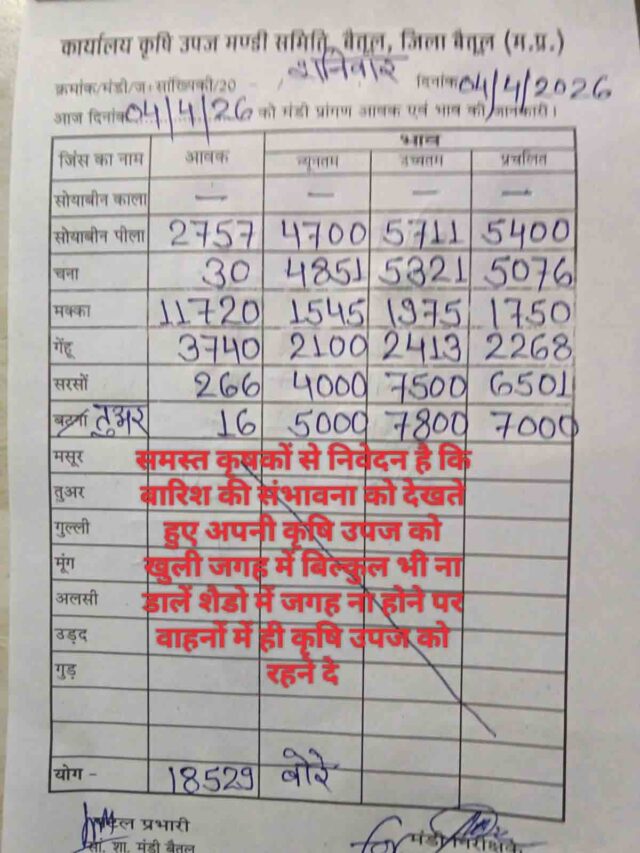 कार्यालय कृषि उपज मण्डी समिति, बैतूल, जिला बैतूल (म.प्र.)
शनिवार
क्रमांक/मंडी/ज: सांख्यिकी/20 - दिनांक 04/4/2026
आज दिनांक 04/4/26 को मंडी प्रांगण आवक एवं भाव की जानकारी।
जिंस का नाम आवक भाव
न्यूनतम उच्चतम प्रचलित
सोयाबीन काला — — — —
सोयाबीन पीला 2757 4700 5711 5400
चना 30 4851 5321 5076
मक्का 11720 1545 1975 1750
गेंहू 3740 2100 2413 2268
सरसों 266 4000 7500 6501
बटना तुअर 16 5000 7800 7000
मसूर
तुअर
गुल्ली
मूंग
अलसी
उड़द
गुड़
समस्त कृषकों से निवेदन है कि
बारिश की संभावना को देखते
हुए अपनी कृषि उपज को
खुली जगह में बिल्कुल भी ना
डालें शैडो में जगह ना होने पर
वाहनों में ही कृषि उपज को
रहने दे
योग - 18529 बोरे
प्रभारी
सां. शा. मंडी बैतूल
मंडी निरीक्षक